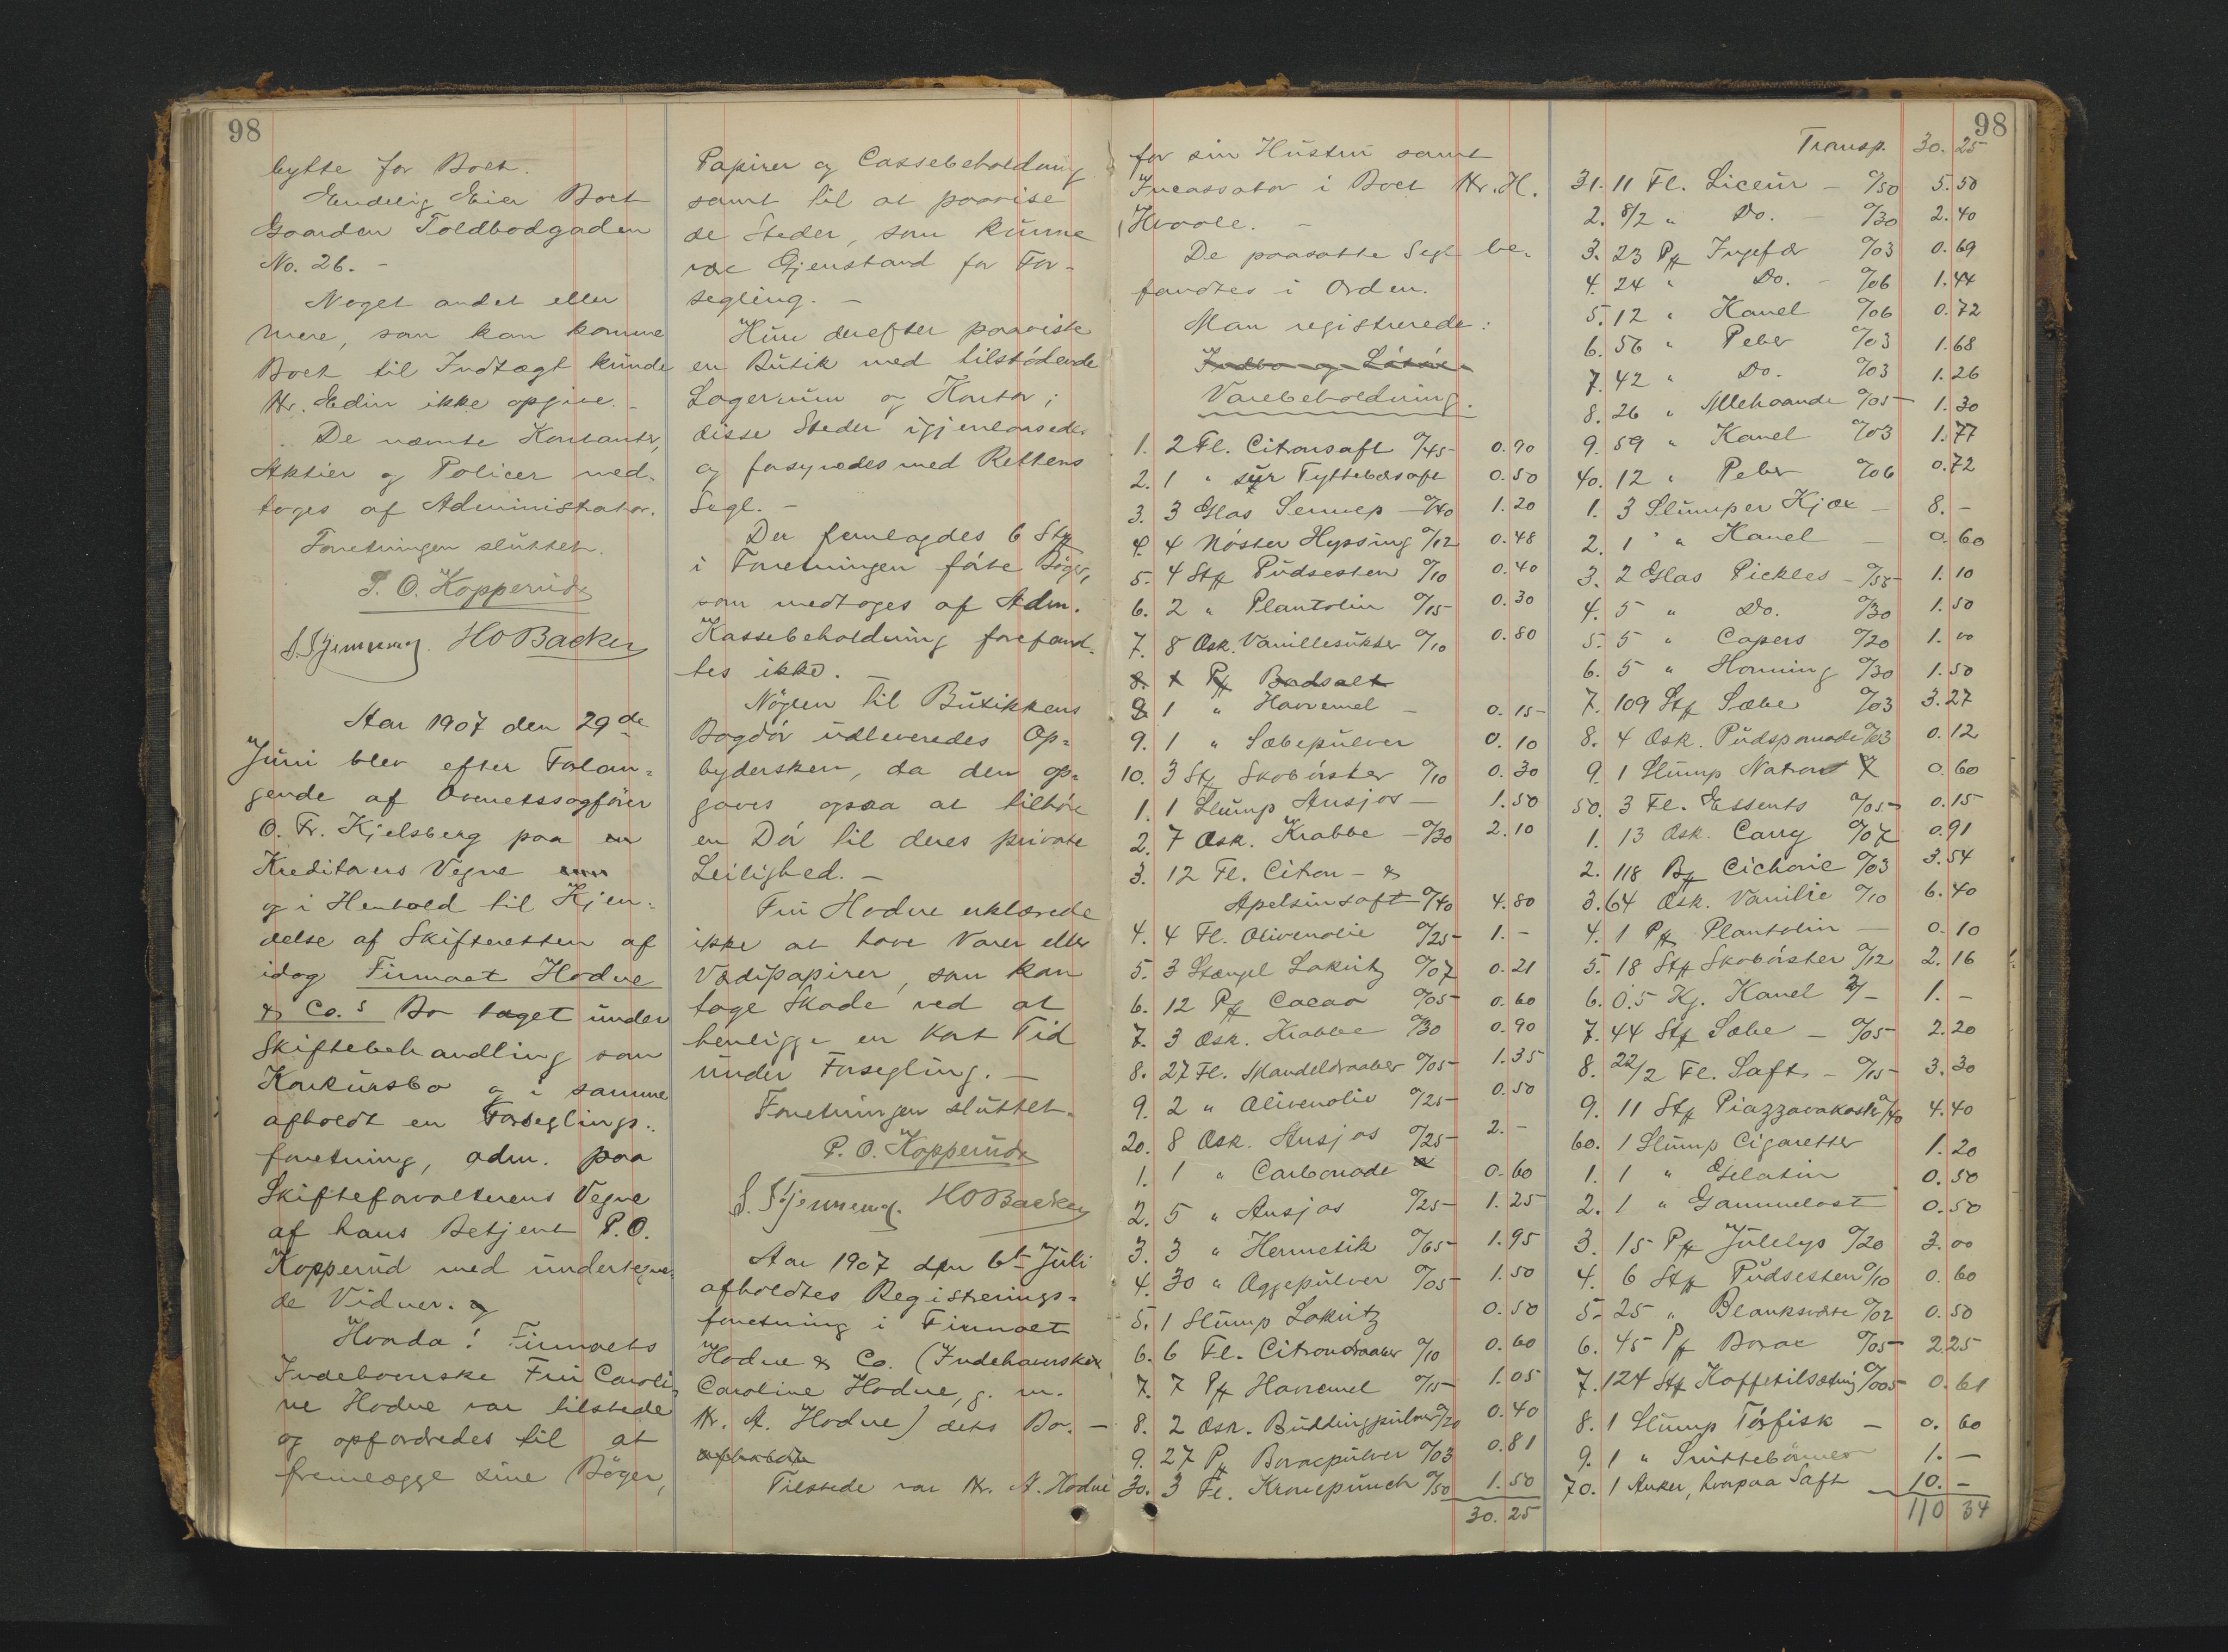 98
bytte for Boet.
Endelig Eier Boet
Gaarden Toldbodgaden
No. 26. -
Noget andet eller
mere, som kan komme
Boet til Indtægt kunde
Hr. Edin ikke opgive. -
De nævnte Kontanter,
Aktier og Policer med-
toges af Administrator.
Forretningen sluttet.
P. O. Kopperud
HOBacker
Aar 1907 den 29de
Juni blev efter Forlan-
gende af Overretssagfører
O. Fr. Kjelsberg paa en
Kreditors Vegne
og i Henhold til Kjen-
delse af Skifteretten af
idag Firmaet Hodne
& Co.s Bo taget under
Skiftebehandling som
Konkursbo og i samme
afholdt en Forseglings-
forretning, adm. paa
Skifteforvalterens Vegne
af hans Betjent P.O.
Kopperud med undertegne-
de Vidner.
Hvorda: Firmaets
Indehaverske Fru Caroli-
ne Hodne var tilstede
og opfordredes til at
fremlægge sine Bøger,
Papirer og Cassebeholdning
samt til at paavise
de Steder, som kunne
være Gjenstand for For-
segling. -
Hun derefter paaviste
en Butik med tilstødende
Lagerrum og Kontor;
disse Steder igjenlaasedes
og forsynedes med Rettens
Segl. -
Der fremlagdes 6 Stk
i Forretningen førte Bøger,
som medtoges af Adm.
Kassebeholdning forefand-
tes ikke. -
Nøglen til Butikkens
Bagdør udleveredes Op-
bydersken, da den op-
gaves ogsaa at tilhøre
en Dør til deres private
Leilighed. -
Fru Hodne erklærede
ikke at have Varer eller
Værdipapirer, som kan
tage Skade ved at
henligge en kort Tid
under Forsegling. -
Forretningen sluttet.
P. O. Kopperud
HOBacker
Aar 1907 den 6te Juli
afholdtes Registrerings-
forretning i Firmaet
Hodne & Co. (Indehaverske
Caroline Hodne, g. m.
Hr. A. Hodne) dets Bo. -
afholdte
Tilstede var Hr. A. Hodne
98
for sin Hustru samt
Incassator i Boet Hr. H.
Hvoole. -
De paasatte Segl be-
fandtes i Orden.
Man registrerede:
Indbo og Løsøre.
Varebeholdning.
1. 2 Fl. Citronsaft %45 0.90
2. 1 " sur Tyttebærsaft 0.50
3. 3 Glas Sennep - %40 1.20
4. 4 Nøster Hyssing %12 0.48
5. 4 Stk Pudsesten %10 0.40
6. 2 " Plantolin %15 0.30
7. 8 Æsk. Vanillesukker %10 0.80
8. 1 Pk Badsalt
8 1 " Havremel - 0.15
9. 1 " Sæbepulver 0.10
10. 3 Stk Skobørster %10 0.30
1. 1 Slump Ansjos - 1.50
2. 7 Æsk. Krabbe - %30 2.10
3. 12 Fl. Citron- &
Apelsinsaft %40 4.80
4. 4 Fl. Olivenolie %25 1. -
5. 3 Stængel Lakritz %07 0.21
6. 12 Pk Cacao %05 0.60
7. 3 Æsk. Krabbe %30 0.90
8. 27 Fl. Mandeldraaber %05 1.35
9. 2 " Olivenolie %25 0.50
20. 8 Æsk. Ansjos %25 2. -
1. 1 " Carbonade 0.60
2. 5 " Ansjos %25 1.25
3. 3 " Hermetik %65 1.95
4. 30 " Æggepulver %05 1.50
5. 1 Slump Lakritz 0.50
6. 6 Fl. Citrondraaber %10 0.60
7. 7 Pk Havremel %15 1.05
8. 2 Æsk. Buddingpulver %20 0.40
9. 27 Pk Boraxpulver %03 0.81
30. 3 Fl. Kronepunch %50 1.50
30.25
98
Transp. 30.25
31. 11 Fl. Liceur - %50 5.50
2. 8/2 " Do. - %30 2.40
3. 23 Pk Ingefær %03 0.69
4. 24 " Do. - %06 1.44
5. 12 " Kanel %06 0.72
6. 56 " Peber %03 1.68
7. 42 " Do. %03 1.26
8. 26 " Allehaande %05 1.30
9. 59 " Kanel %03 1.77
40. 12 " Peber %06 0.72
1. 3 Slumper Kjæx - 8. -
2. 1 " Kanel - 0.60
3. 2 Glas Pickles - %55 1.10
4. 5 " Do. %30 1.50
5. 5 " Capers %20 1.00
6. 5 " Honning %30 1.50
7. 109 Stk Sæbe %03 3.27
8. 4 Æsk. Pudspomade %03 0.12
9. 1 Slump Natron 0.60
50. 3 Fl. Essents %05 0.15
1. 13 Æsk. Carry %07 0.91
2. 118 Pk Cichorie %03 3.54
3. 64 Æsk. Vanilie %10 6.40
4. 1 Pk Plantolin - 0.10
5. 18 Stk Skobørster %12 2.16
6. 0.5 Kg. Kanel 2/- 1. -
7. 44 Stk Sæbe - %05 2.20
8. 22/2 Fl. Saft - %15 3.30
9. 11 Stk Piazzavakoster %40 4.40
60. 1 Slump Cigaretter 1.20
1. 1 " Gelatin 0.50
2. 1 " Gammelost 0.50
3. 15 Pk Julelys %20 3.00
4. 6 Stk Pudsesten %10 0.60
5. 25 " Blanksværte %02 0.50
6. 45 Pk Borax %05 2.25
7. 124 Stk Kaffetilsætning %005 0.61
8. 1 Slump Tørfisk - 0.60
9. 1 " Snittebønner 1. -
70. 1 Anker, hvorpaa Saft 10. -
110 34